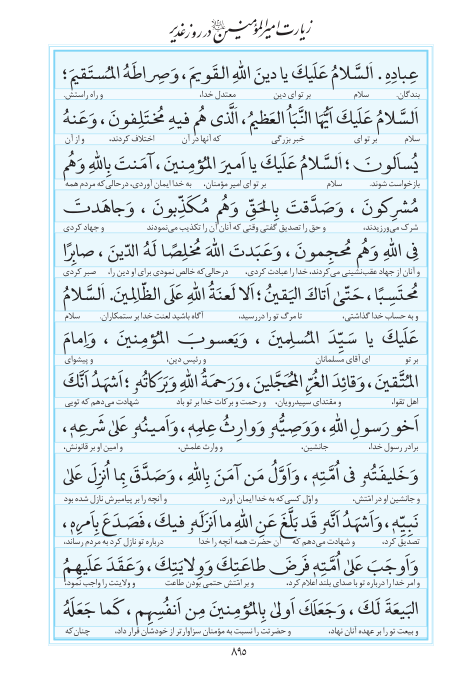 زیارت امیرالمؤمنین در روز غدیر
عِبادِهِ. اَلسَّلامُ عَلَيْكَ يا دينَ اللهِ الْقَويمَ، وَصِراطَهُ الْمُسْتَقيمَ؛
بندگان. سلام بر تو ای دین معتدل خدا، و راه راستش.
اَلسَّلامُ عَلَيْكَ اَيُّهَا النَّبَأُ الْعَظيمُ، الَّذي هُم فيهِ مُخْتَلِفُونَ، وَعَنْهُ
سلام بر تو ای خبر بزرگی که آنها در آن اختلاف کردند، و از آن
يُسْأَلونَ؛ اَلسَّلامُ عَلَيْكَ يا اَميرَ الْمُؤْمِنينَ، آمَنْتَ بِاللهِ وَهُم
بازخواست شوند. سلام بر تو ای امیر مؤمنان، به خدا ایمان آوردی، درحالی‌که مردم همه
مُشْرِكونَ، وَصَدَّقْتَ بِالْحَقِّ وَهُم مُكَذِّبونَ، وَجاهَدْتَ
شرک می‌ورزیدند، و حق را تصدیق گفتی وقتی که آنان آن را تکذیب می‌نمودند و جهاد کردی
فِي اللهِ وَهُم مُحْجِمونَ، وَعَبَدْتَ اللهَ مُخْلِصًا لَهُ الدّينَ، صابِرًا
و آنان از جهاد عقب‌نشینی می‌کردند، خدا را عبادت کردی، درحالی‌که خالص نمودی برای او دین را، صبر کردی
مُحْتَسِبًا، حَتّىٰ اَتاكَ الْيَقينُ؛ اَلا لَعْنَةُ اللهِ عَلَى الظّالِمينَ. اَلسَّلامُ
و به حساب خدا گذاشتی، تا مرگ تو را دررسید، آگاه باشید لعنت خدا بر ستمکاران. سلام
عَلَيْكَ يا سَيِّدَ الْمُسْلِمينَ، وَيَعْسوبَ الْمُؤْمِنينَ، وَاِمامَ
بر تو ای آقای مسلمانان و رئیس دین، و پیشوای
الْمُتَّقينَ، وَقائِدَ الْغُرِّ الْمُحَجَّلينَ، وَرَحْمَةُ اللهِ وَبَرَكاتُهُ؛ اَشْهَدُ اَنَّكَ
اهل تقوا، و مقتدای سپیدرویان، و رحمت و برکات خدا بر تو باد شهادت می‌دهم که تویی
اَخو رَسولِ اللهِ، وَوَصِيُّهُ وَوارِثُ عِلْمِهِ، وَاَمينُهُ عَلىٰ شَرْعِهِ،
برادر رسول خدا، جانشین، و وارث علمش، و امین او بر قانونش،
وَخَليفَتُهُ فِي اُمَّتِهِ، وَاَوَّلُ مَن آمَنَ بِاللهِ، وَصَدَّقَ بِما اُنْزِلَ عَلىٰ
و جانشین او در امّتش، و اوّل کسی که به خدا ایمان آورد، و آنچه را بر پیامبرش نازل شده بود
نَبِيِّهِ، وَاَشْهَدُ اَنَّهُ قَد بَلَّغَ عَنِ اللهِ ما اَنْزَلَهُ فيكَ، فَصَدَعَ بِاَمْرِهِ،
تصدیق کرد، و شهادت می‌دهم که آن حضرت همه آنچه را خدا درباره تو نازل کرد به مردم رساند،
وَاَوْجَبَ عَلىٰ اُمَّتِهِ فَرْضَ طاعَتِكَ وَوِلايَتِكَ، وَعَقَدَ عَلَيْهِمُ
و امر خدا را درباره تو با صدای بلند اعلام کرد، و بر امّتش حتمی بودن طاعت و ولایتت را واجب نمود،
الْبَيْعَةَ لَكَ، وَجَعَلَكَ اَوْلىٰ بِالْمُؤْمِنينَ مِن اَنْفُسِهِم، كَما جَعَلَهُ
و بیعت تو را بر عهده آنان نهاد، و حضرتت را نسبت به مؤمنان سزاوارتر از خودشان قرار داد، چنان‌که
۸۹۵